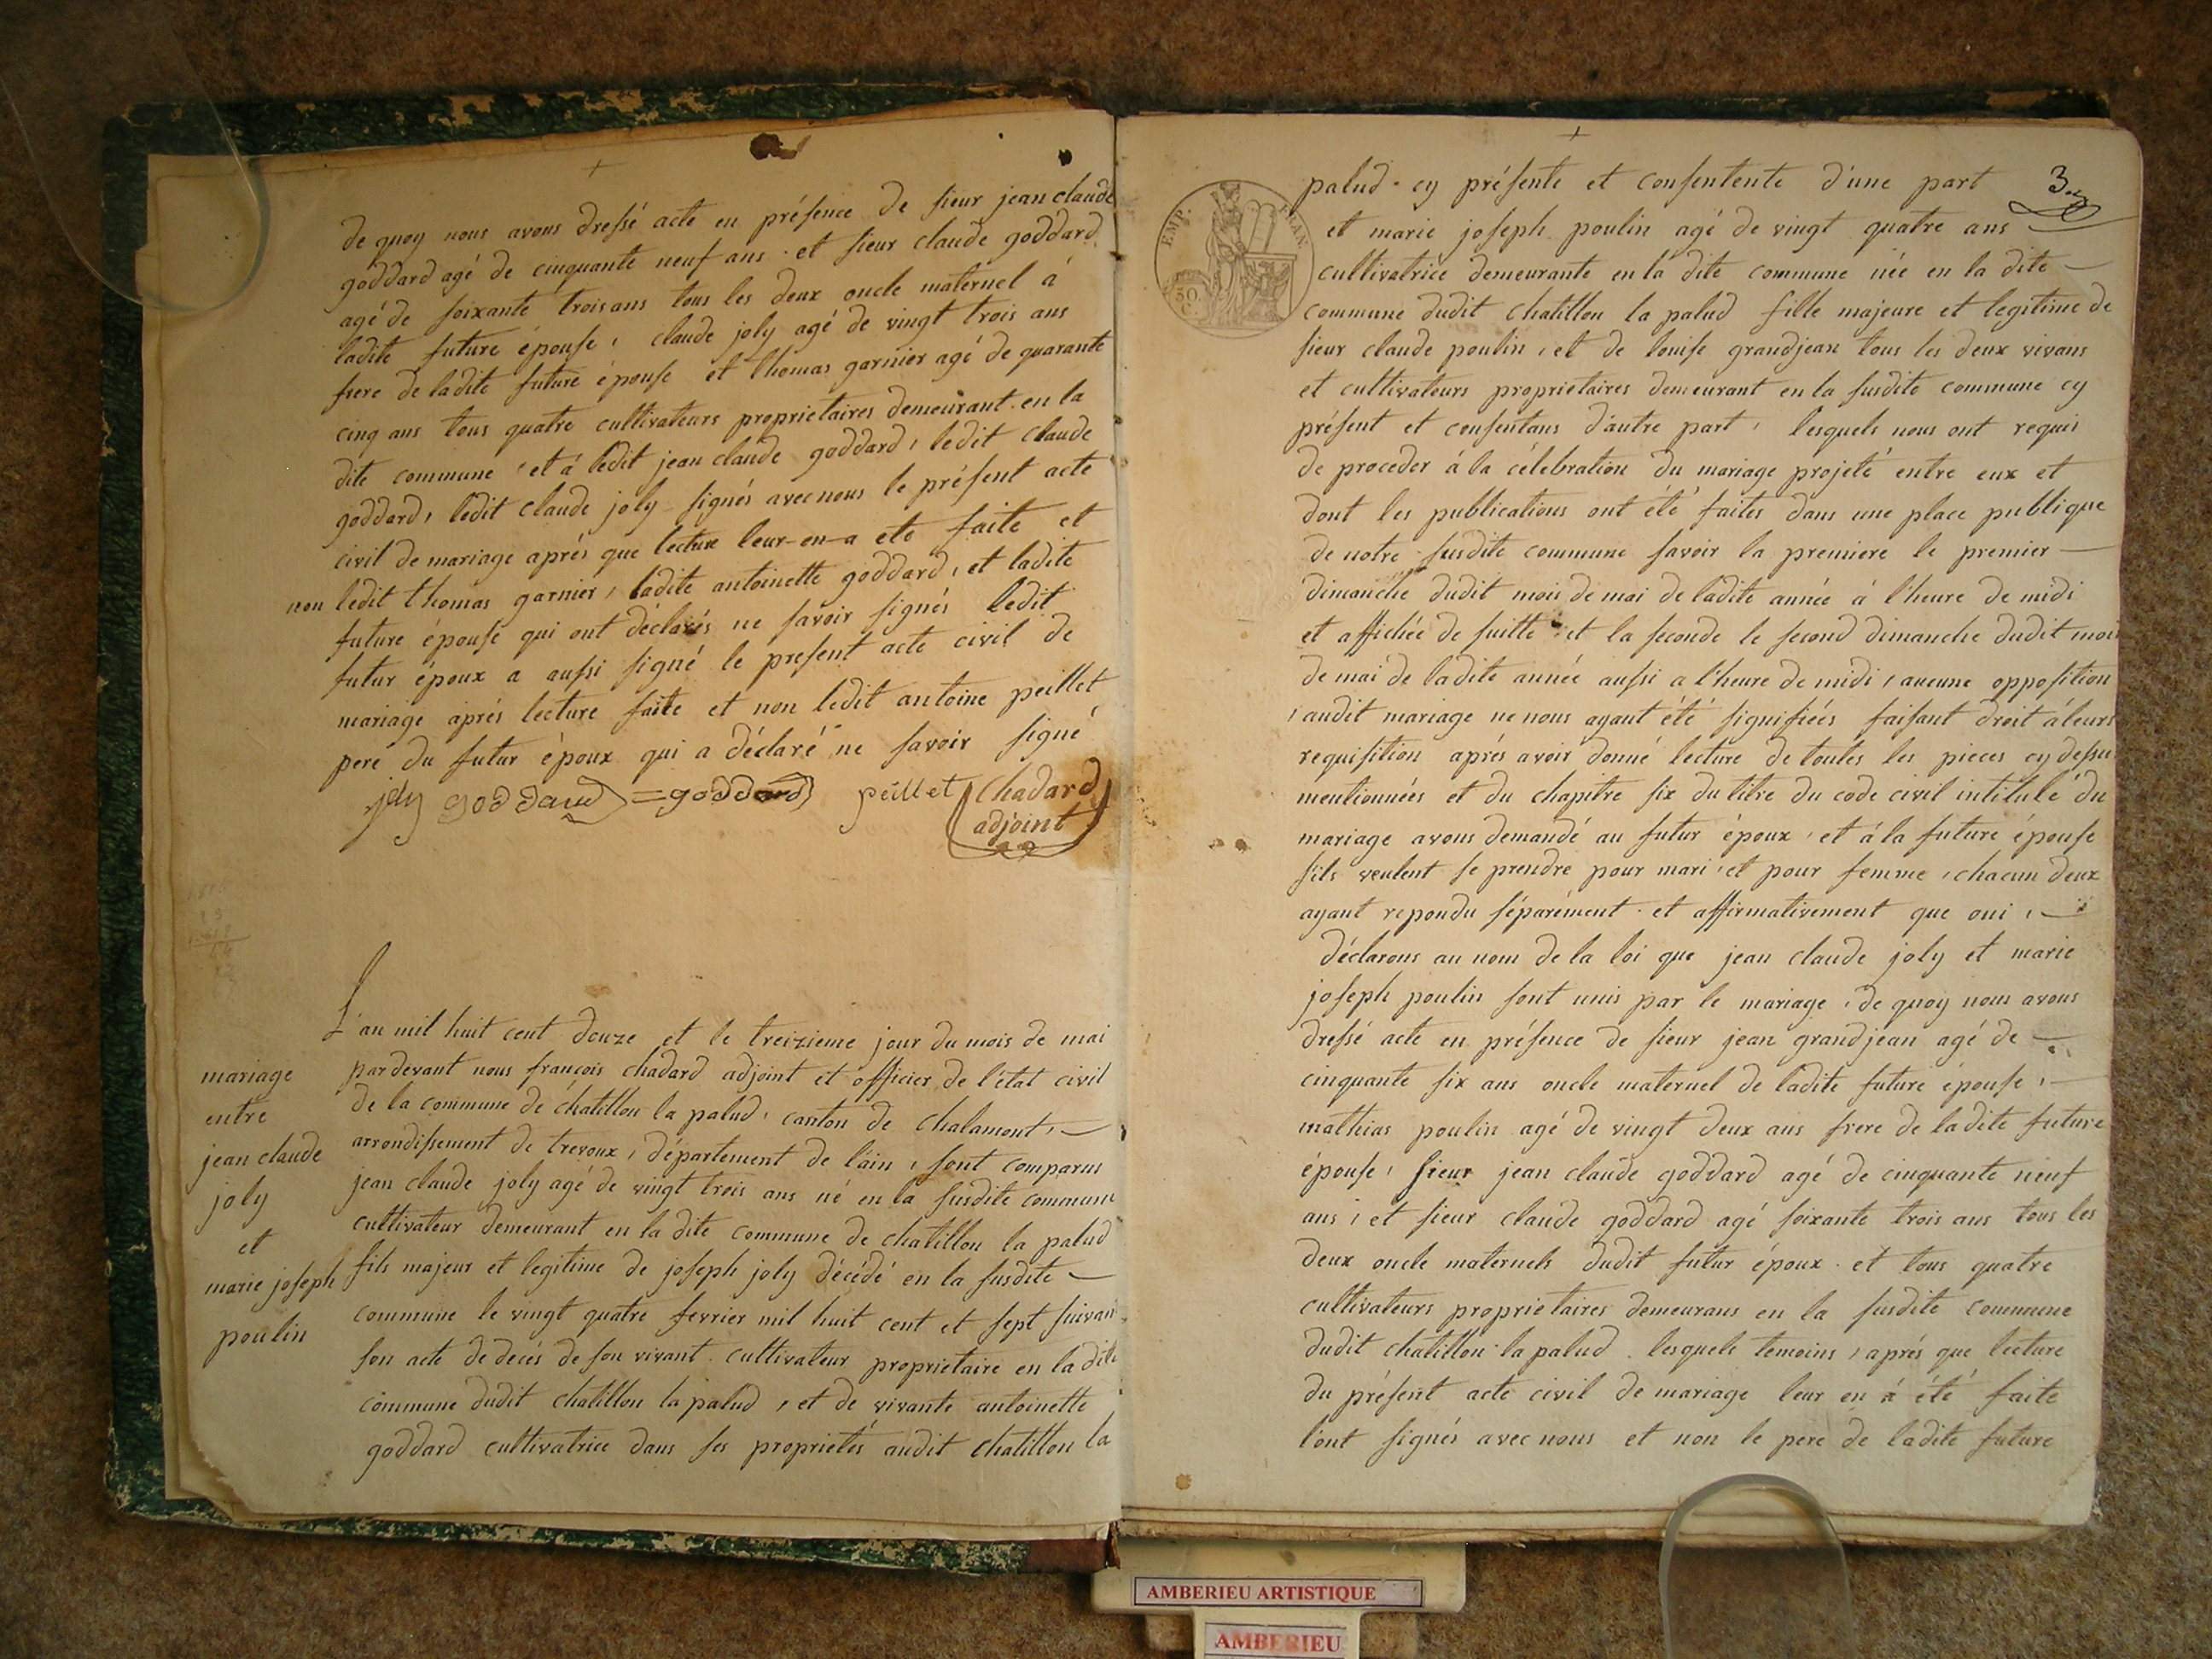 de quoy nous avons dressé acte en présence de sieur jean claude
goddard agé de cinquante neuf ans et sieur claude goddard
agé de soixante trois ans tous les deux oncle maternel á
ladite future épouse, claude joly agé de vingt trois ans
frere de ladite future épouse et thomas garnier agé de quarante
cinq ans tous quatre cultivateurs proprietaires demeurant en la
dite commune et á ledit jean claude goddard, ledit claude
goddard, ledit claude joly signés avec nous le présent acte
civil de mariage aprés que lecture leur-en-a eté faite et
non ledit thomas garnier, ladite antoinette goddard, et ladite
future épouse qui ont déclarés ne savoir signés ledit
futur époux a aussi signé le present acte civil de
mariage aprés lecture faite et non ledit antoine peillet
pere du futur époux qui a déclaré ne savoir signé
joly goddard = goddard peillet chadard
adjoint
mariage
entre
jean claude
joly
et
marie joseph
poulin
L'an mil huit cent douze et le treizieme jour du mois de mai
pardevant nous françois chadard adjoint et officier de l'état civil
de la commune de chatillon la palud, canton de chalamont,
arrondissement de trevoux, département de l'ain, sont comparus
jean claude joly agé de vingt trois ans né en la susdite commune
cultivateur demeurant en la dite commune de chatillon la palud
fils majeur et legitime de joseph joly décédé en la susdite
commune le vingt quatre fevrier mil huit cent et sept suivan
son acte de decés de son vivant cultivateur proprietaire en la dite
commune dudit chatillon la palud, et de vivante antoinette
goddard cultivatrice dans ses proprietés audit chatillon la
3
EMP. FRAN.
50
palud cy présente et consentente d'une part
et marie joseph poulin agé de vingt quatre ans
cultivatrice demeurante en la dite commune née en la dite
commune dudit chatillon la palud fille majeure et legitime de
sieur claude poulin, et de louise grandjean tous les deux vivans
et cultivateurs proprietaires demeurant en la susdite commune cy
présent et consentans d'autre part, lesquels nous ont requis
de proceder á la célebration du mariage projeté entre eux et
dont les publications ont été faites dans une place publique
de notre susdite commune savoir la premiere le premier
dimanche dudit mois de mai de ladite année á l'heure de midi
et affichée de suitte et la seconde le second dimanche dudit mois
de mai de ladite année aussi a l'heure de midi, aucune opposition
audit mariage ne nous ayant été signifiées faisant droit á leurs
requisition aprés avoir donné lecture de toutes les pieces cy dessu
mentionnées et du chapitre six du titre du code civil intitulé du
mariage avons demandé au futur époux, et á la future épouse
sils veulent se prendre pour mari, et pour femme, chacun deux
ayant repondu séparément et affirmativement que oui,
déclarons au nom de la loi que jean claude joly et marie
joseph poulin sont unis par le mariage, de quoy nous avons
dressé acte en présence de sieur jean grandjean agé de
cinquante six ans oncle maternel de ladite future épouse,
mathias poulin agé de vingt deux ans frere de ladite future
épouse, sieur jean claude goddard agé de cinquante neuf
ans, et sieur claude goddard agé soixante trois ans tous les
deux oncle maternels dudit futur époux et tous quatre
cultivateurs proprietaires demeurans en la susdite commune
dudit chatillon la palud lesquels temoins, aprés que lecture
du présent acte civil de mariage leur en á été faite
l'ont signés avec nous et non le pere de ladite future
AMBERIEU ARTISTIQUE
AMBERIEU